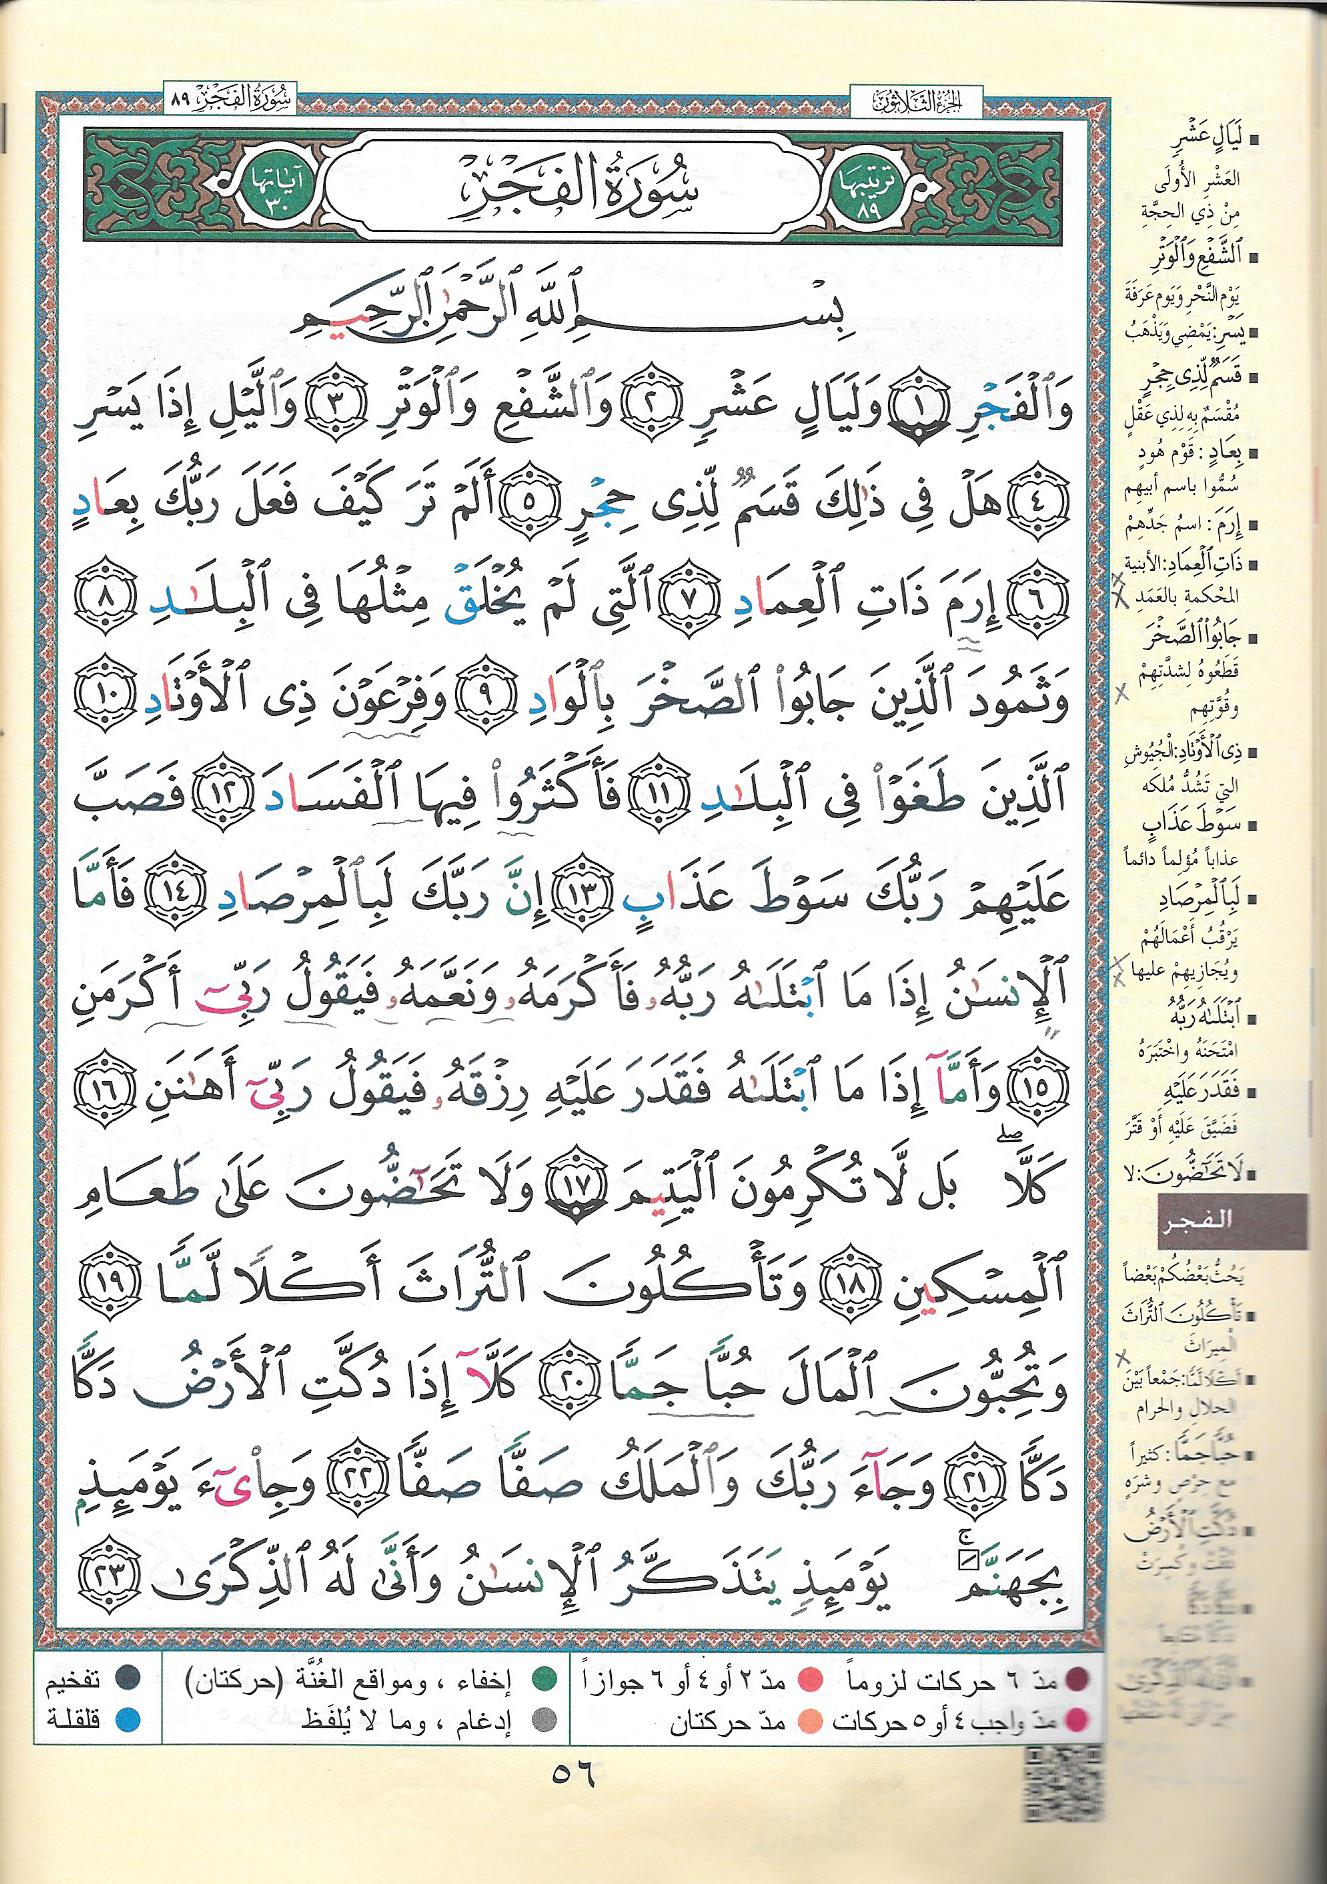 الجزء الثلاثون
سورة الفجر ٨٩
ترتيبها ٨٩
سُورَةُ الفَجْرِ
آياتها ٣٠
بِسْمِ ٱللَّهِ ٱلرَّحْمَٰنِ ٱلرَّحِيمِ
وَٱلْفَجْرِ ١ وَلَيَالٍ عَشْرٍ ٢ وَٱلشَّفْعِ وَٱلْوَتْرِ ٣ وَٱلَّيْلِ إِذَا يَسْرِ
٤ هَلْ فِى ذَٰلِكَ قَسَمٌ لِّذِى حِجْرٍ ٥ أَلَمْ تَرَ كَيْفَ فَعَلَ رَبُّكَ بِعَادٍ
٦ إِرَمَ ذَاتِ ٱلْعِمَادِ ٧ ٱلَّتِى لَمْ يُخْلَقْ مِثْلُهَا فِى ٱلْبِلَٰدِ ٨
وَثَمُودَ ٱلَّذِينَ جَابُوا۟ ٱلصَّخْرَ بِٱلْوَادِ ٩ وَفِرْعَوْنَ ذِى ٱلْأَوْتَادِ ١٠
ٱلَّذِينَ طَغَوْا۟ فِى ٱلْبِلَٰدِ ١١ فَأَكْثَرُوا۟ فِيهَا ٱلْفَسَادَ ١٢ فَصَبَّ
عَلَيْهِمْ رَبُّكَ سَوْطَ عَذَابٍ ١٣ إِنَّ رَبَّكَ لَبِٱلْمِرْصَادِ ١٤ فَأَمَّا
ٱلْإِنسَٰنُ إِذَا مَا ٱبْتَلَىٰهُ رَبُّهُۥ فَأَكْرَمَهُۥ وَنَعَّمَهُۥ فَيَقُولُ رَبِّىٓ أَكْرَمَنِ
١٥ وَأَمَّآ إِذَا مَا ٱبْتَلَىٰهُ فَقَدَرَ عَلَيْهِ رِزْقَهُۥ فَيَقُولُ رَبِّىٓ أَهَٰنَنِ ١٦
كَلَّا ۖ بَل لَّا تُكْرِمُونَ ٱلْيَتِيمَ ١٧ وَلَا تَحَٰٓضُّونَ عَلَىٰ طَعَامِ
ٱلْمِسْكِينِ ١٨ وَتَأْكُلُونَ ٱلتُّرَاثَ أَكْلًا لَّمًّا ١٩
وَتُحِبُّونَ ٱلْمَالَ حُبًّا جَمًّا ٢٠ كَلَّآ إِذَا دُكَّتِ ٱلْأَرْضُ دَكًّا
دَكًّا ٢١ وَجَآءَ رَبُّكَ وَٱلْمَلَكُ صَفًّا صَفًّا ٢٢ وَجِا۟ىٓءَ يَوْمَئِذٍۭ
بِجَهَنَّمَ ۚ يَوْمَئِذٍ يَتَذَكَّرُ ٱلْإِنسَٰنُ وَأَنَّىٰ لَهُ ٱلذِّكْرَىٰ ٢٣
لَيَالٍ عَشْرٍ
العَشْرِ الأُولَى
مِنْ ذِي الحِجَّةِ
ٱلشَّفْعِ وَٱلْوَتْرِ
يَوْمِ النَّحْرِ وَيَومِ عَرَفَةَ
يَسْرِ: يَمْضِي وَيَذْهَبُ
قَسَمٌ لِّذِى حِجْرٍ
مُقْسَمٌ بِهِ لِذِي عَقْلٍ
بِعَادٍ: قَوْمِ هُودٍ
سُمُّوا باسمِ أبيهِم
إِرَمَ: اسمُ جَدِّهِمْ
ذَاتِ ٱلْعِمَادِ: الأبنية
المحْكمةِ بالعَمَدِ
جَابُوا۟ ٱلصَّخْرَ
قَطَعُوهُ لِشدَّتِهِمْ
وقُوَّتِهِم
ذِى ٱلْأَوْتَادِ: الجُيُوشِ
التي تَشُدُّ مُلكَه
سَوْطَ عَذَابٍ
عذاباً مُؤلِماً دائماً
لَبِٱلْمِرْصَادِ
يَرْقُبُ أَعْمَالَهُمْ
ويُجَازِيهِمْ عليها
ٱبْتَلَىٰهُ رَبُّهُ
امْتَحَنَهُ واخْتَبَرَهُ
فَقَدَرَ عَلَيْهِ
فَضَيَّقَ عَلَيْهِ أَوْ قَتَّرَ
لَا تَحَٰٓضُّونَ: لا
الفجر
يَحُثُّ بَعْضُكُمْ بَعْضاً
تَأْكُلُونَ ٱلتُّرَاثَ
الْمِيرَاثَ
أَكْلًا لَّمًّا: جَمْعاً بَيْنَ
الحلالِ والحرام
حُبًّا جَمًّا: كثيراً
مع حِرْصٍ وشَرَهٍ
دُكَّتِ ٱلْأَرْضُ
دُقَّتْ وكُسِرَتْ
مدّ ٦ حركات لزوماً مدّ ٢ أو ٤ أو ٦ جوازاً
إخفاء ، ومواقع الغُنَّة (حركتان)
تفخيم
مدّ واجب ٤ أو ٥ حركات مدّ حركتان
إدغام ، وما لا يُلفَظ
قلقلة
٥٦